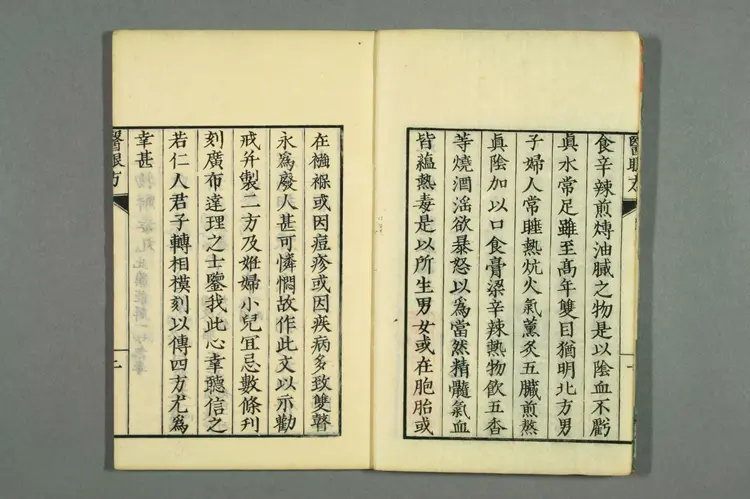 醫眼方
食辛辣煎煿油膩之物是以陰血不虧
眞水常足雖至高年雙目猶明北方男
子婦人常睡熱炕火氣薰炙五臟煎熬
眞陰加以口食膏粱辛辣熱物飲五香
等燒酒滛欲暴怒以爲當然精髓氣血
皆蘊熱毒是以所生男女或在胞胎或
在襁褓或因痘疹或因疾病多致雙瞽
永爲廢人甚可憐憫故作此文以示勸
戒幷製二方及姙婦小兒宜忌數條刋
刻廣布達理之士鑒我此心幸聽信之
若仁人君子轉相模刻以傳四方尤爲
幸甚
醫眼方
二